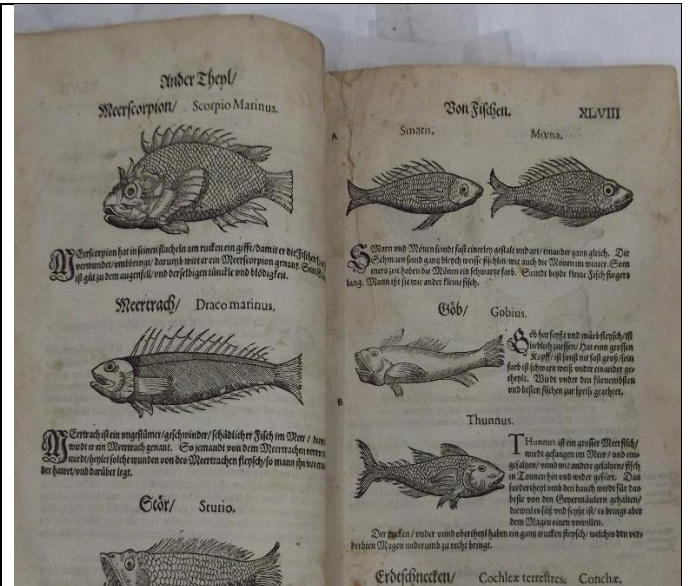 Ander Theyl/
Meerscorpion/ Scorpio Marinus.
MEerscorpion hat in seinen stacheln am rucken ein gifft/ damit er die Fischer
verwundet/ umbbringt/ darumb wirt er ein Meerscorpion genant. Sein
ist gut zu dem augenfell/ und derselbigen tünckle und blödigkeit.
Meertrach/ Draco marinus.
MEertrach ist ein ungestümer/ geschwinder/ schädlicher Fisch im Meer/
wirdt er ein Meertrach genant. So jemandt von dem Meertrachen
wirdt/ heylet solche wunden von des Meertrachen fleysch/ so mann
der hawet/ und darüber legt.
Stör/ Sturio.
Von Fischen. XLVIII
A
Smaris. Mœna.
SMarn und Mönen seindt fast einerley gestalt und art/ einander gantz gleich. Die
Schmarn seind gantz bleych weisse fischlin/ wie auch die Mönen im winter. Som
merszeit haben die Mönen ein schwartze farb. Seindt beyde kleine Fisch fingers
lang. Mann ißt sie wie ander kleine fisch.
Göb/ Gobius.
Göb hat feyßt und mürb fleysch/ ist
lieblich zuessen/ Hat einn grossen
Kopff/ ist sonst nit fast groß/ sein
farb ist schwartz weiß under einander ge-
theylt. Wirdt under den fürnembsten
und besten fischen zur speiß geachtet.
B
Thunnus.
THunnus ist ein grosser Meerfisch/
wirdt gefangen im Meer/ und ein-
gesaltzen/ unnd wie andere gesaltzen fisch
in Tonnen hin und wider gefürt. Das
fordertheyl umb den bauch wirdt für das
beste von den Geyermäulern gehalten/
dieweil es süß und feyßt ist/ es bringt aber
dem Magen einen unwillen.
Der rucken/ under unnd obertheyl haben ein gantz trucken fleysch/ welches den ver-
derbten Magen widerumb zu recht bringt.
Erdtschnecken/ Cochleæ terrestres, Conchæ.